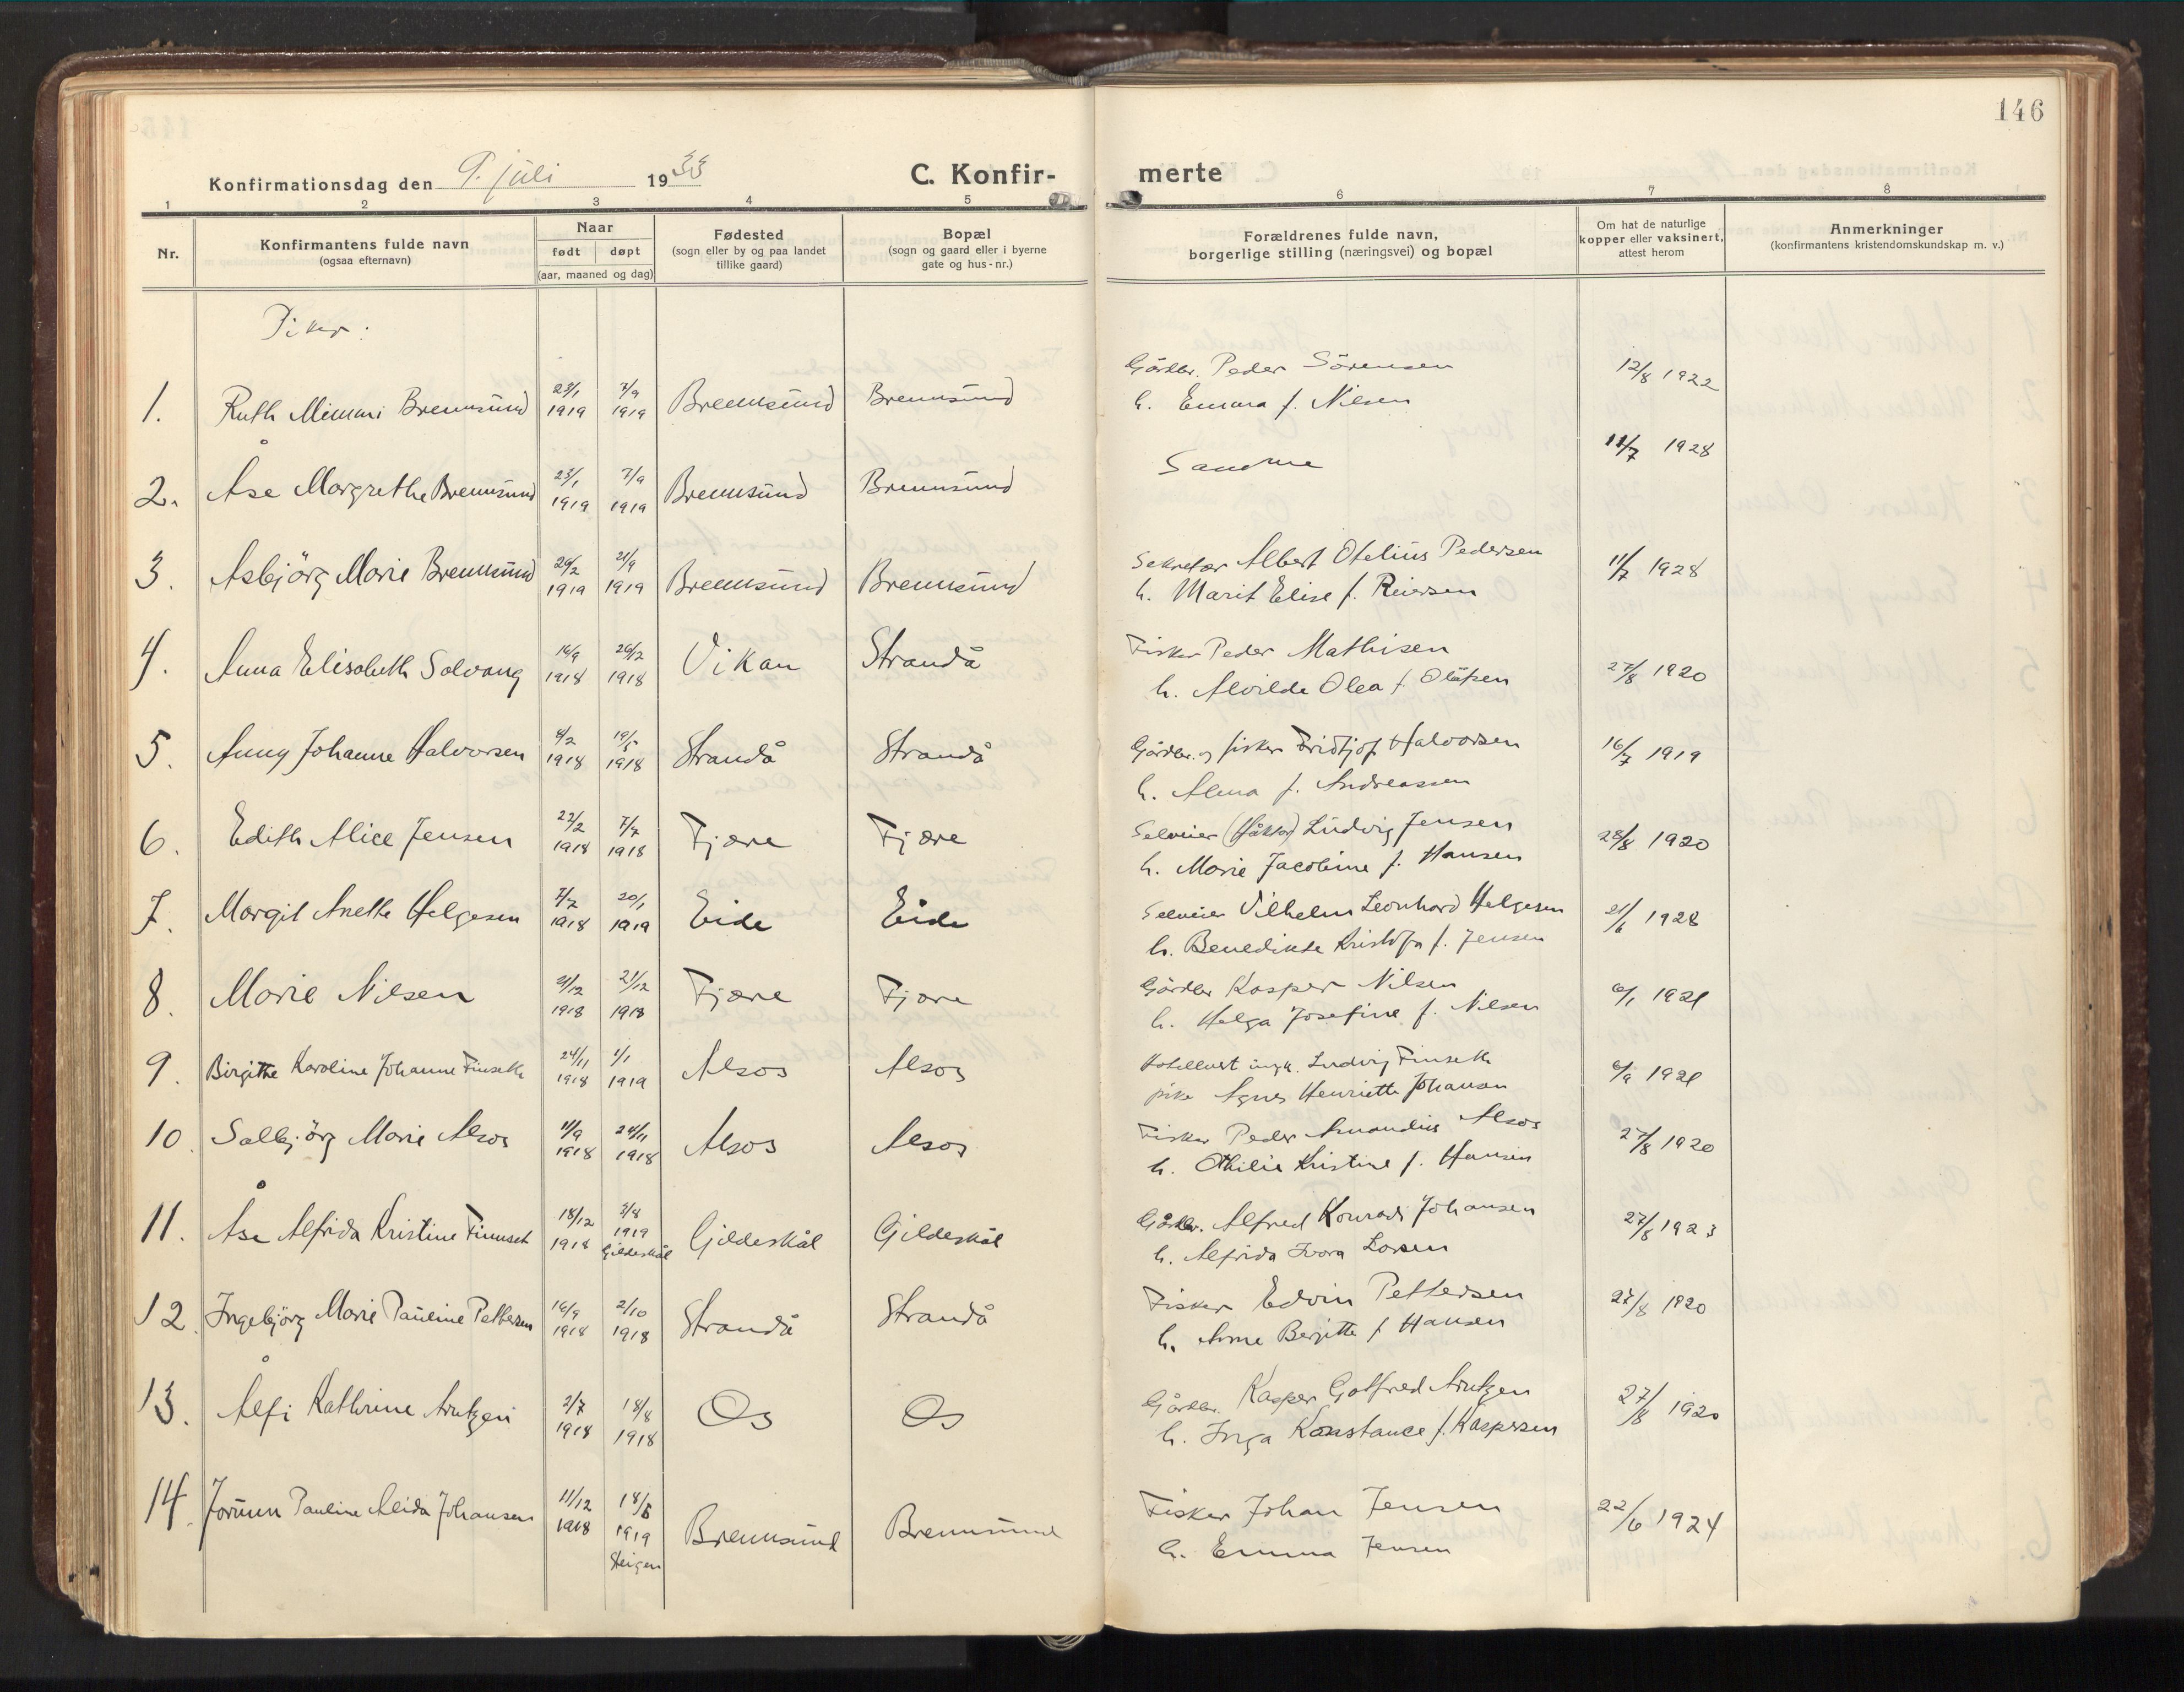 146
Konfirmationsdag den 9. juli 1933
C. Konfir- merte
1 2 3 4 5 6 7 8
Nr.
Konfirmantens fulde navn
(ogsaa efternavn)
Naar
født døpt
(aar, maaned og dag)
Fødested
(sogn eller by og paa landet
tillike gaard)
Bopæl
(sogn og gaard eller i byerne
gate og hus-nr.)
Forældrenes fulde navn,
borgerlige stilling (næringsvei) og bopæl
Om hat de naturlige
kopper eller vaksinert,
attest herom
Anmerkninger
(konfirmantens kristendomskundskap m. v.)
Piker:
1. Ruth Mimmi Brennsund 23/1 1919 7/9 1919 Brennsund Brennsund
Gårdbr. Peder Sörensen
h. Emma f. Nilsen
12/8 1922
2. Åse Margrethe Brennsund 23/1 1919 7/9 1919 Brennsund Brennsund
Samme
11/7 1928
3. Asbjörg Marie Brennsund 1919 21/9 1919 Brennsund Brennsund
Sekretær Albert Otelius Pedersen
h. Marit Elise f. Reiersen
11/7 1928
4. Anna Elisabeth Solvang 16/9 1918 26/12 1918 Vikan Strandå
Fisker Peder Mathisen
h. Alvilde Olea f. Olufsen
27/8 1920
5. Anny Johanne Halvorsen 8/2 1918 19/5 1918 Strandå Strandå
Gårdbr. og fisker Fridtjof Halvorsen
h. Alma f. Andreassen
16/7 1919
6. Edith Alice Jensen 22/2 1918 7/7 1918 Fjære Fjære
Selveier Ludvig Jensen
h. Marie Jacobine f. Hansen
28/8 1920
7. Margit Anette Helgesen 7/7 1918 20/1 1919 Eide Eide
Selveier Vilhelm Leonhard Helgesen
h. Benedikte f. Jensen
21/6 1928
8. Marie Nilsen 1918 21/12 1918 Fjære Fjære
Gårdbr Kasper Nilsen
h. Helga Josefine f. Nilsen
6/1 1921
9. Birgitte Karoline Johanne Finseth 24/11 1918 1/1 1919 Alsos Alsos
Ludvig Finseth
pike Agnes Henriette Johansen
6/9 1921
10. Solbjörg Marie Alsos 11/9 1918 24/11 1918 Alsos Alsos
Fisker Peder Amandius Alsos
h. Othilie Kristine f. Hansen
27/8 1920
11. Åse Alfrida Kristine Finnset 18/12 1918 3/8 1919 Gildeskål Gildeskål Gildeskål
Gårdbr. Alfred Konrad Johansen
h. Alfrida Ivora Larsen
27/8 1923
12. Ingebjörg Marie Pauline Pettersen 16/9 1918 2/10 1918 Strandå Strandå
Fisker Edvin Pettersen
h. Anne Bergitte f Hansen
27/8 1920
13. Ålfi Kathrine Arntzen 2/7 1918 18/8 1918 Os Os
Gårdbr. Kasper Gotfred Arntzen
h. Inga Konstance f. Kaspersen
27/8 1920
14. Jorunn Pauline Alida Johansen 11/12 1918 18/5 1919 Steigen Brennsund Brennsund
Fisker Johan Jensen
h. Emma Jensen
22/6 1924